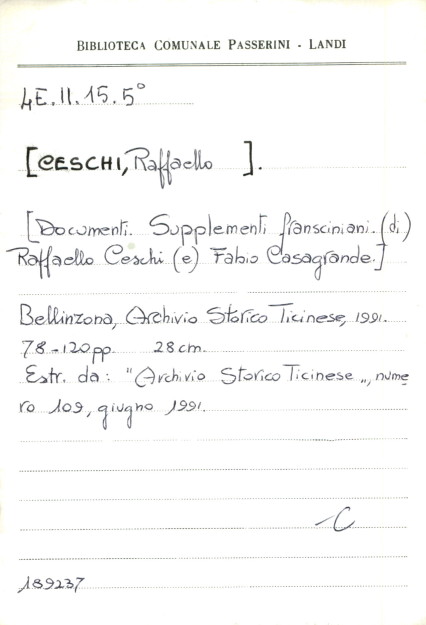 BIBLIOTECA COMUNALE PASSERINI - LANDI
4E.II.15.5°
[CESCHI, Raffaello ].
[Documenti. Supplementi fransciniani. (di)
Raffaello Ceschi (e) Fabio Casagrande.]
Bellinzona, Archivio Storico Ticinese, 1991.
78-120 pp. 28 cm.
Estr. da: "Archivio Storico Ticinese", nume
ro 109, giugno 1991.
-C
189237